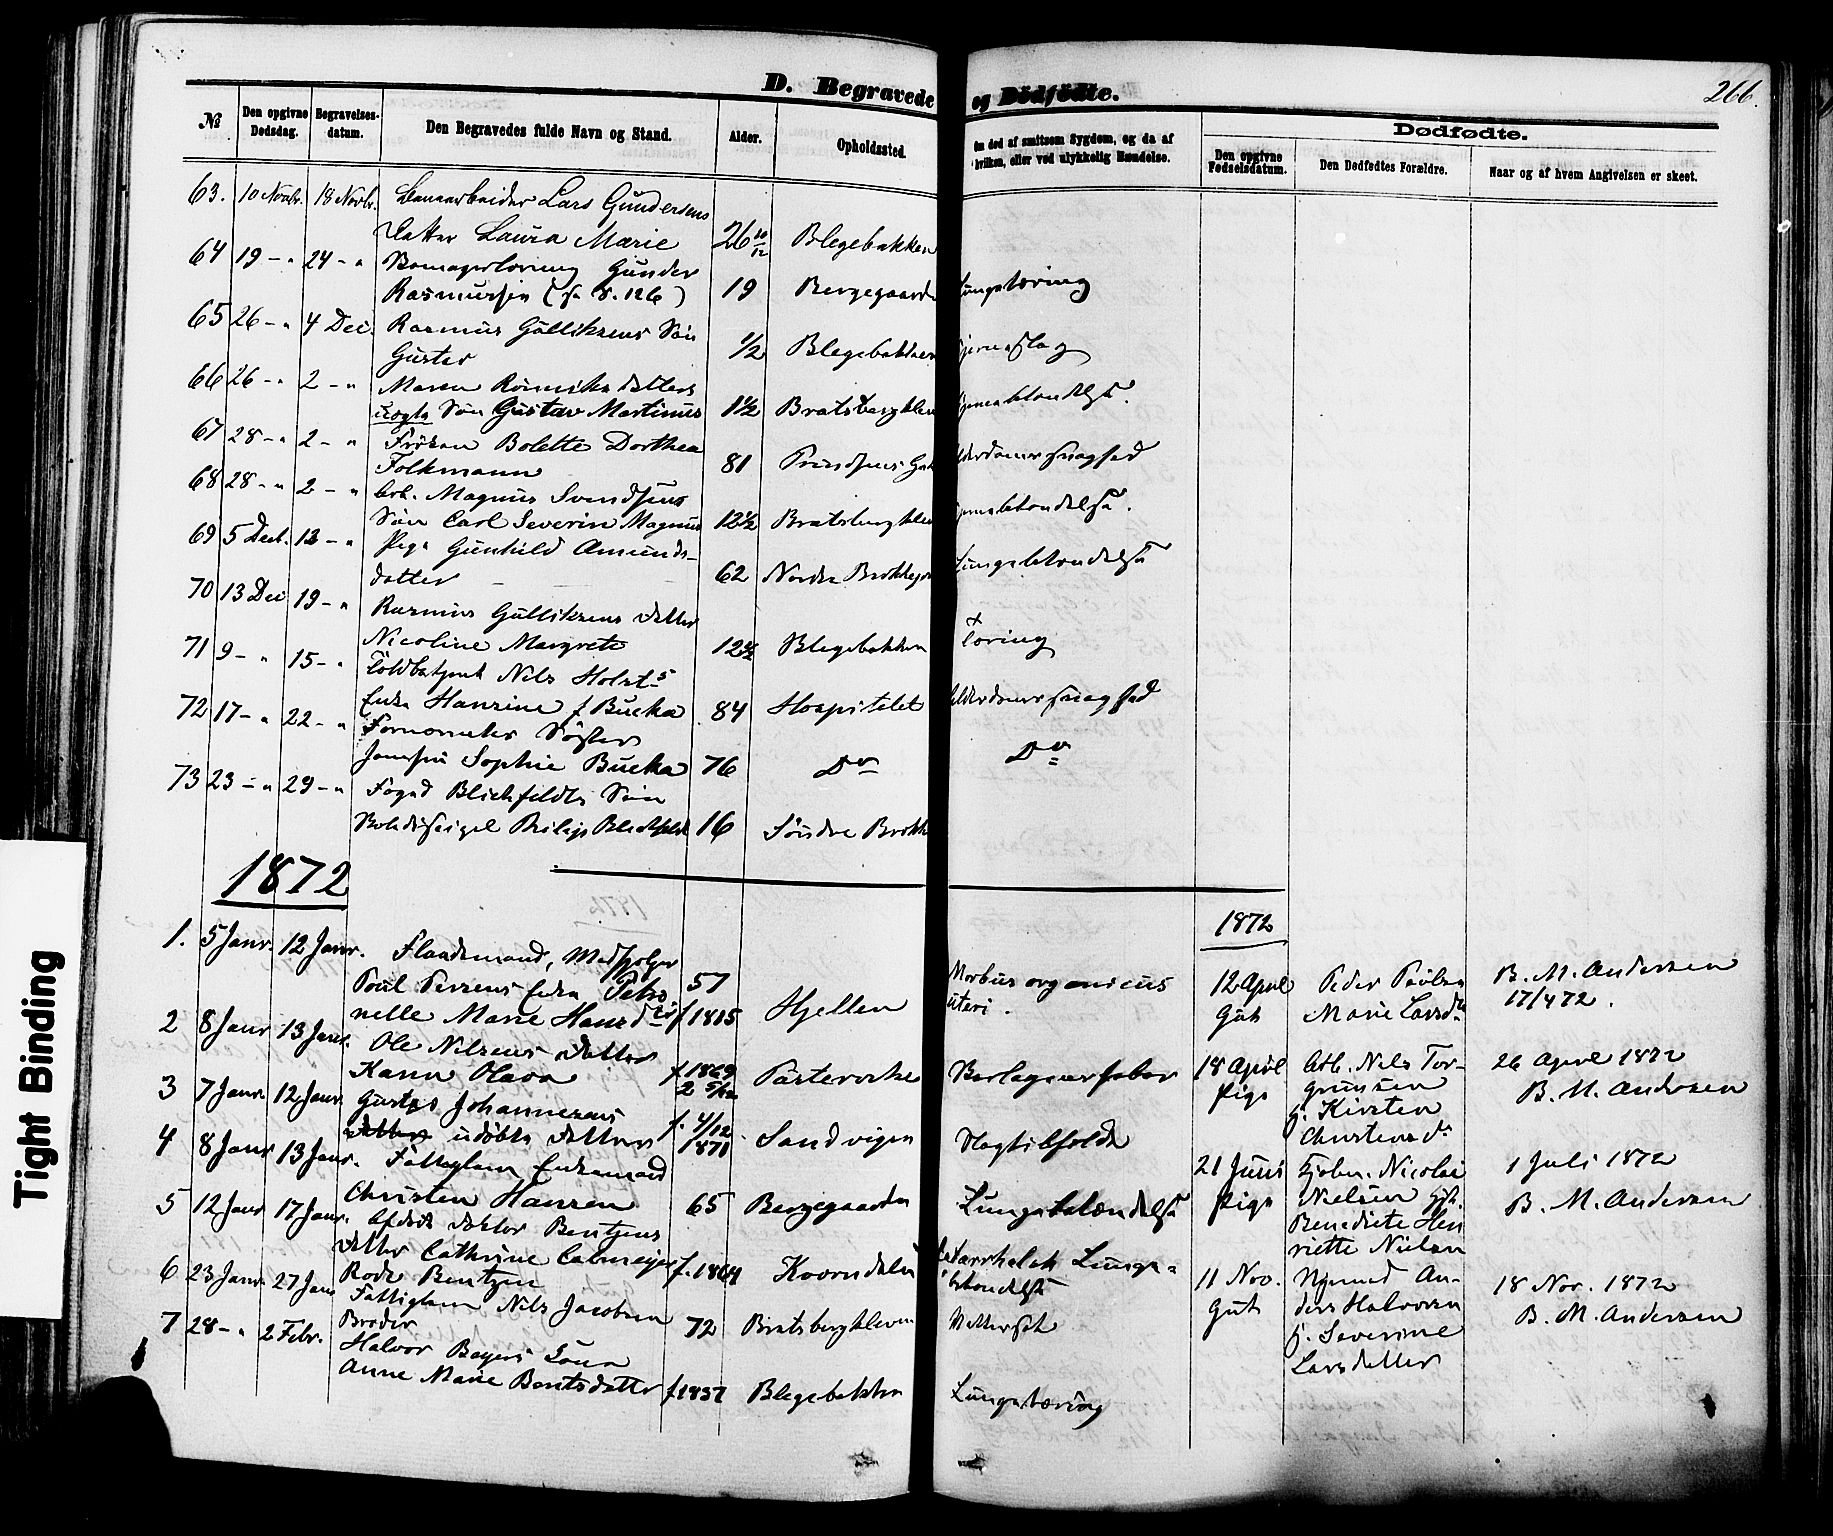 266.
D. Begravede og Dødfødte.
№
Den opgivne Dødsdag.
Begravelses-datum.
Den Begravedes fulde Navn og Stand.
Alder.
Opholdssted.
Om død af smitsom Sygdom, og da af
hvilken, eller ved ulykkelig Hændelse.
Dødfødte.
Den opgivne Fødselsdatum.
Den Dødfødtes Forældre.
Naar og af hvem Angivelsen er skeet.
63. 10 Novbr. 18 Novbr. Lars Gundersens
Datter Laura Marie 26 10/12 Blegebakken
64 19 - " 24 - " Gunder
Rasmussen (se S. 126) 19 Bergegaarden Lungetæring
65 26 - " 4 Dec. Rasmus Gulliksens Søn
Gustav 1/2 Blegebakken Hjerneslag
66 26 - " 2 - " Maren datters
uægte Søn Gustav Martinus 1 1/2 Bratsbergkleven
67 28 - " 2 - " Frøken Bolette Dorthea
Folkmann 81 Prindsens Gade Alderdomssvaghed
68 28 - " 2 - " Arb. Magnus Svendsens
Søn Carl Severin Magnus 12 1/2 Bratsbergkleven
69 5 Decb. 12 - " Pige Gunhild Amunds-
datter 62 Nordre Lungebetændelse
70 13 Dec 19 - " Rasmus Gulliksens Datter
Nicoline Margrete 12 1/2 Blegebakken Tæring
71 9 - " 15 - " Toldbetjent Nils Holst's
Enke Hansine f. Bucka 84 Hospitalet Alderdomssvaghed
72 17 - " 22 - " Fornævntes Søster
Jomfru Sophie Bucka 76 Do Do
73 23 - " 29 - " Foged Blichfeldts Søn
Philip Blichfeldt 16 Søndre
1872
1. 5 Janr. 12 Janr. Poul Enke Petro
nelle Marie Hansdtr 57 f 1815 Hjellen Morbus organicus
uteri.
2 8 Janr 13 Janr. Ole Nilsens Datter
Karen Olava f. 1869 2 5/12
3 7 Janr. 12 Janr. Gustav Johannesens
udøbte Datter f. 4/12 1871 Sandvigen
4 8 Janr 13 Janr. Fattiglem Enkemand
Christen Hansen 65 Bergegaarden Lungebetændelse
5 12 Janr 17 Janr. Afdøde Doktor Bentzens
Datter Cathrine Calmeyer
Rode Bentzen f. 1864 Catarrhalsk Lunge-
betændelse
6 23 Janr. 27 Jan Fattiglem Nils Jacobsen
72 Bratsbergkleven
7 28 - " 2 Febr. Halvor
Anne Marie Bentsdatter f 1837 Blegebakken Lungetæring
1872
12 April
Gut
Peder
Marie Larsdtr
B. M. Andersen
17/4 72.
18 April
Pige
Arb. Nils Tor-
grimsen
g. Kirsten
Christensdr
26 April 1872
B. M. Andersen
21 Juni
Pige
Nicolai
Nielsen
Benedicte Hen
riette Nielsen
1 Juli 1872
B. M. Andersen
11 Nov.
Gut
An-
ders Halvorsen
g. Severine
Larsdatter
18 Nov. 1872
B. M. Andersen
Tight Binding